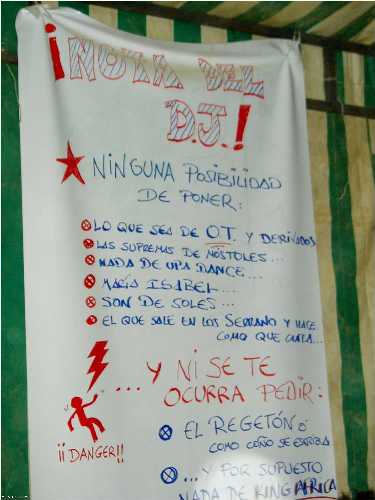 ¡NOTA DEL
D.J.!
NINGUNA POSIBILIDAD
DE PONER:
LO QUE SEA DE OT. Y DERIVADOS
LAS SUPREMAS DE MÓSTOLES...
NADA DE UPA DANCE...
MAGIA ISABEL...
SON DE SOLES...
EL QUE SALE EN LOS SERRANO Y HACE
COMO QUE CANTA...
...Y NI SE TE
OCURRA PEDIR:
EL REGETÓN ó
COMO COÑO SE ESCRIBA
...Y POR SUPUESTO
NADA DE KING AFRICA
¡¡DANGER!!